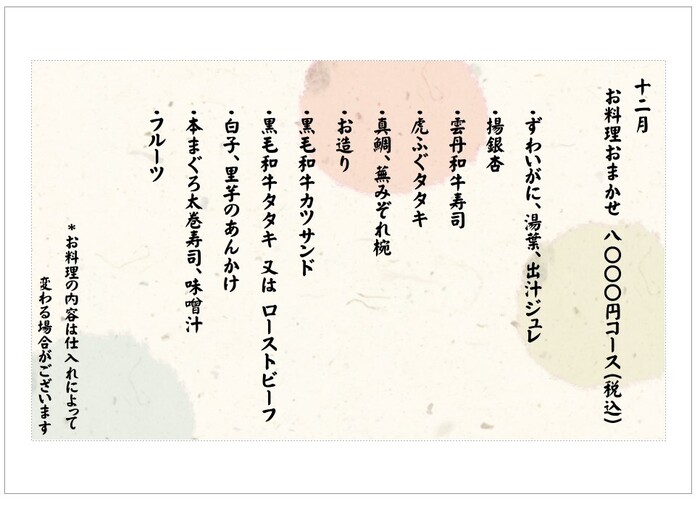 十二月
お料理おまかせ 八〇〇〇円コース(税込)
・ずわいがに、湯葉、出汁ジュレ
・揚銀杏
・雲丹和牛寿司
・虎ふぐタタキ
・真鯛、蕪みぞれ椀
・お造り
・黒毛和牛カツサンド
・黒毛和牛タタキ 又は ローストビーフ
・白子、里芋のあんかけ
・本まぐろ太巻寿司、味噌汁
・フルーツ
*お料理の内容は仕入れによって
変わる場合がございます